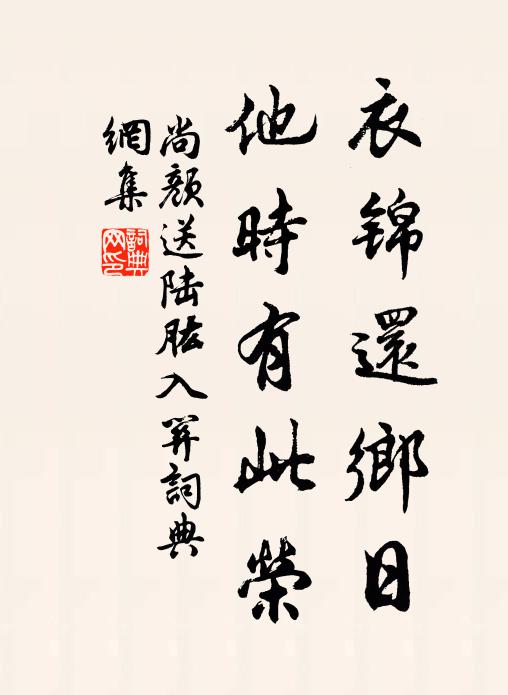 衣錦還鄉日
他時有此榮
尚顏送陸肱入關詞典
網集
詞典網印